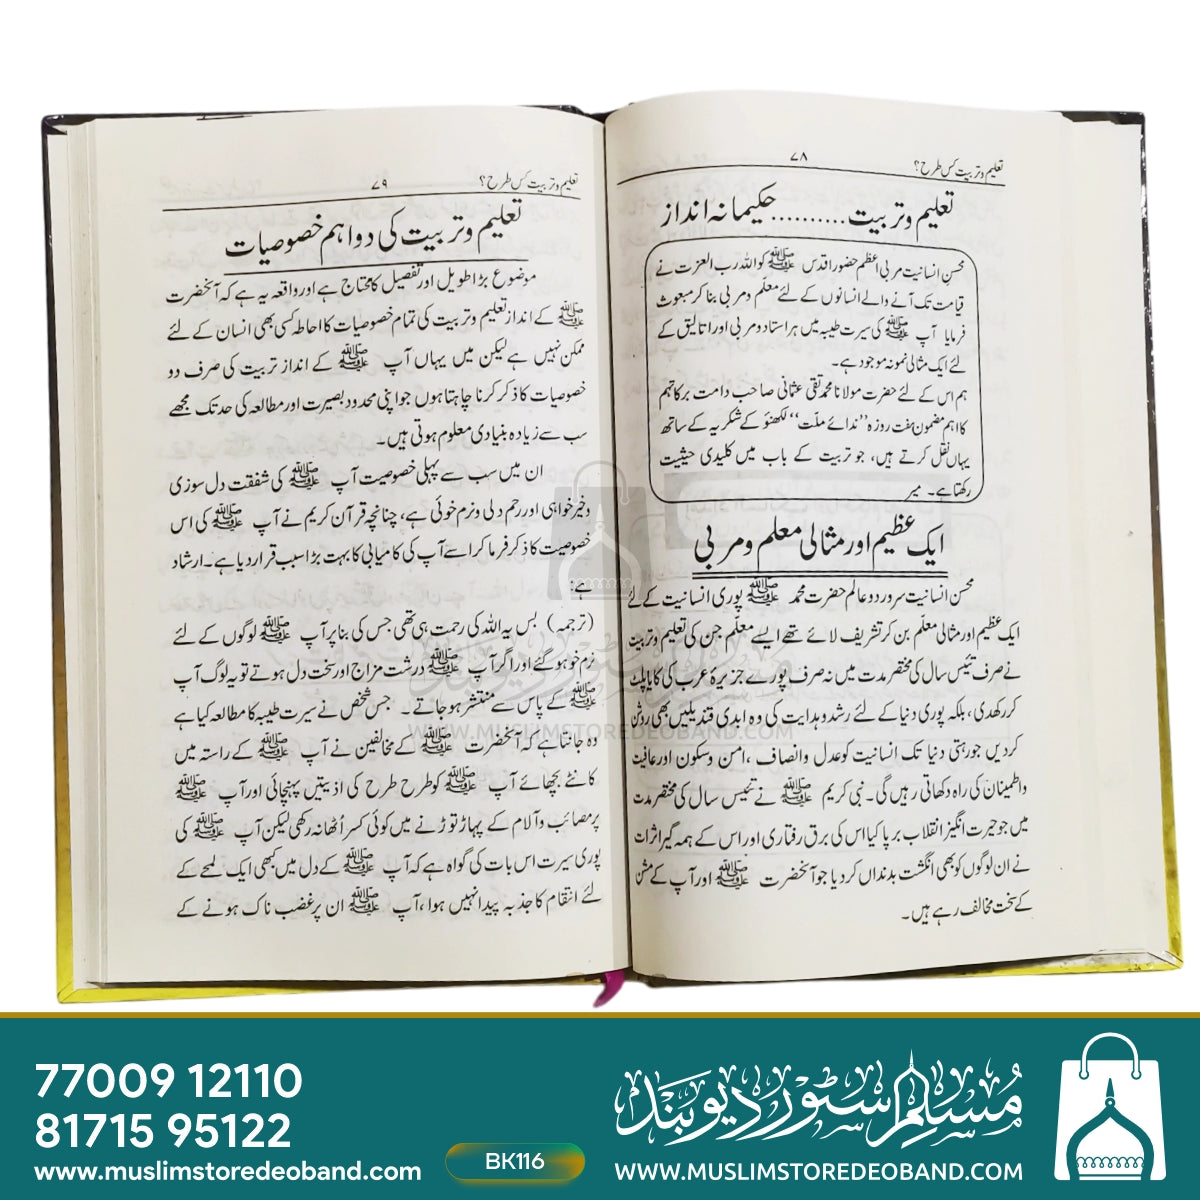 تعلیم و تربیت کس طرح؟
۷۸
تعلیم و تربیت.......... حکیمانہ انداز
محسن انسانیت مربی اعظم حضور اقدس ﷺ کو اللہ رب العزت نے
قیامت تک آنے والے انسانوں کے لئے معلّم و مربی بنا کر مبعوث
فرمایا آپ ﷺ کی سیرت طیبہ میں ہر استاد و مربی اور اتالیق کے
لئے ایک مثالی نمونہ موجود ہے۔
ہم اس کے لئے حضرت مولانا محمد تقی عثمانی صاحب دامت برکاتہم
کا اہم مضمون ہفت روزہ ’’ندائے ملّت‘‘ لکھنؤ کے شکریہ کے ساتھ
یہاں نقل کرتے ہیں، جو تربیت کے باب میں کلیدی حیثیت
رکھتا ہے۔ میر
ایک عظیم اور مثالی معلم و مربی
محسن انسانیت سرور دو عالم حضرت محمد ﷺ پوری انسانیت کے لئے
ایک عظیم اور مثالی معلم بن کر تشریف لائے تھے ایسے معلّم جن کی تعلیم و تربیت
نے صرف تئیس سال کی مختصر مدت میں نہ صرف پورے جزیرۂ عرب کی کایا پلٹ
کر رکھدی، بلکہ پوری دنیا کے لئے رشد و ہدایت کی وہ ابدی قندیلیں بھی روشن
کردیں جو رہتی دنیا تک انسانیت کو عدل و انصاف، امن و سکون اور عافیت
و اطمینان کی راہ دکھاتی رہیں گی۔ نبی کریم ﷺ نے تئیس سال کی مختصر مدت
میں جو حیرت انگیز انقلاب برپا کیا اس کی برق رفتاری اور اس کے ہمہ گیر اثرات
نے ان لوگوں کو بھی انگشت بدنداں کر دیا جو آنحضرت ﷺ اور آپ کے مشن
کے سخت مخالف رہے ہیں۔
تعلیم و تربیت کس طرح؟
۷۹
تعلیم و تربیت کی دو اہم خصوصیات
موضوع بڑا طویل اور تفصیل کا محتاج ہے اور واقعہ یہ ہے کہ آنحضرت
ﷺ کے انداز تعلیم و تربیت کی تمام خصوصیات کا احاطہ کسی بھی انسان کے لئے
ممکن نہیں ہے لیکن میں یہاں آپ ﷺ کے انداز تربیت کی صرف دو
خصوصیات کا ذکر کرنا چاہتا ہوں جو اپنی محدود بصیرت اور مطالعہ کی حد تک مجھے
سب سے زیادہ بنیادی معلوم ہوتی ہیں۔
ان میں سب سے پہلی خصوصیت آپ ﷺ کی شفقت دل سوزی
و خیر خواہی اور رحم دلی و نرم خوئی ہے، چنانچہ قرآن کریم نے آپ ﷺ کی اس
خصوصیت کا ذکر فرما کر اسے آپ کی کامیابی کا بہت بڑا سبب قرار دیا ہے۔ ارشاد
ہے:
(ترجمہ) بس یہ اللہ کی رحمت ہی تھی جس کی بنا پر آپ ﷺ لوگوں کے لئے
نرم خو ہو گئے اور اگر آپ ﷺ درشت مزاج اور سخت دل ہوتے تو یہ لوگ آپ
ﷺ کے پاس سے منتشر ہو جاتے۔ جس شخص نے سیرت طیبہ کا مطالعہ کیا ہے
وہ جانتا ہے کہ آنحضرت ﷺ کے مخالفین نے آپ ﷺ کے راستہ میں
کانٹے بچھائے آپ ﷺ کو طرح طرح کی اذیتیں پہنچائی اور آپ ﷺ
پر مصائب و آلام کے پہاڑ توڑنے میں کوئی کسر اُٹھا نہ رکھی لیکن آپ ﷺ کی
پوری سیرت اس بات کی گواہ ہے کہ آپ ﷺ کے دل میں کبھی ایک لمحے کے
لئے انتقام کا جذبہ پیدا نہیں ہوا، آپ ﷺ ان پر غضب ناک ہونے کے
مسلم سٹور دیوبند
WWW.MUSLIMSTOREDEOBAND.COM
77009 12110
81715 95122
www.muslimstoredeoband.com
BK116
مسلم سٹور دیوبند
WWW.MUSLIMSTOREDEOBAND.COM